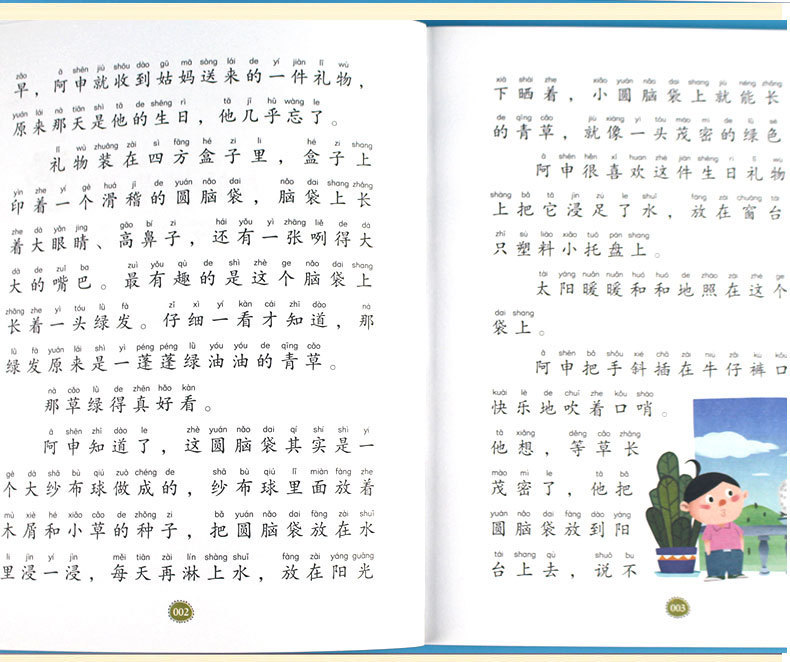 zǎo ā shēn jiù shōu dào gū mā sòng lái de yí jiàn lǐ wù
早，阿申就收到姑妈送来的一件礼物，
yuán lái nà tiān shì tā de shēng rì tā jī hū wàng le
原来那天是他的生日，他几乎忘了。
lǐ wù zhuāng zài sì fāng hé zi lǐ hé zi shang
礼物装在四方盒子里，盒子上
yìn zhe yí gè huá jī de yuán nǎo dai nǎo dai shang zhǎng
印着一个滑稽的圆脑袋，脑袋上长
zhe dà yǎn jing gāo bí zi hái yǒu yì zhāng liě de dà
着大眼睛、高鼻子，还有一张咧得大
dà de zuǐ ba zuì yǒu qù de shì zhè ge nǎo dai shang
大的嘴巴。最有趣的是这个脑袋上
zhǎng zhe yì tóu lǜ fà zǐ xì yí kàn cái zhī dào nà
长着一头绿发。仔细一看才知道，那
lǜ fà yuán lái shì yì péng péng lǜ yóu yóu de qīng cǎo
绿发原来是一蓬蓬绿油油的青草。
nà cǎo lǜ de zhēn hǎo kàn
那草绿得真好看。
ā shēn zhī dào le zhè yuán nǎo dai qí shí shì yí
阿申知道了，这圆脑袋其实是一
gè dà shā bù qiú zuò chéng de shā bù qiú lǐ miàn fàng zhe
个大纱布球做成的，纱布球里面放着
mù xiè hé xiǎo cǎo de zhǒng zi bǎ yuán nǎo dai fàng zài shuǐ
木屑和小草的种子，把圆脑袋放在水
lǐ jìn yí jìn měi tiān zài lín shàng shuǐ fàng zài yáng guāng
里浸一浸，每天再淋上水，放在阳光
002
xià shài zhe xiǎo yuán nǎo dai shang jiù néng zhǎng
下晒着，小圆脑袋上就能长
de qīng cǎo jiù xiàng yì tóu mào mì de lǜ sè
的青草，就像一头茂密的绿色
ā shēn hěn xǐ huan zhè jiàn shēng rì lǐ wù
阿申很喜欢这件生日礼物
shàng bǎ tā jìn zú le shuǐ fàng zài chuāng tái
上把它浸足了水，放在窗台
zhī sù liào xiǎo tuō pán shang
只塑料小托盘上。
tài yáng nuǎn nuǎn huó huó de zhào zài zhè ge
太阳暖暖和和地照在这个
dai shang
袋上。
ā shēn bǎ shǒu xié chā zài niú zǎi kù kǒu
阿申把手斜插在牛仔裤口
kuài lè de chuī zhe kǒu shào
快乐地吹着口哨。
tā xiǎng děng cǎo zhǎng
他想，等草长
mào mì le tā bǎ
茂密了，他把
yuán nǎo dai fàng dào yáng
圆脑袋放到阳
tái shang qù shuō bu
台上去，说不
003